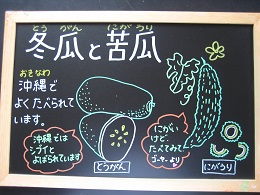 とうがん にがうり
冬瓜と苦瓜
おきなわ
沖縄で
よくたべられて
います。
沖縄では
シブイと
よばれています
とうがん
にがい
けど
たべてみて
ゴーヤーより
にがうり